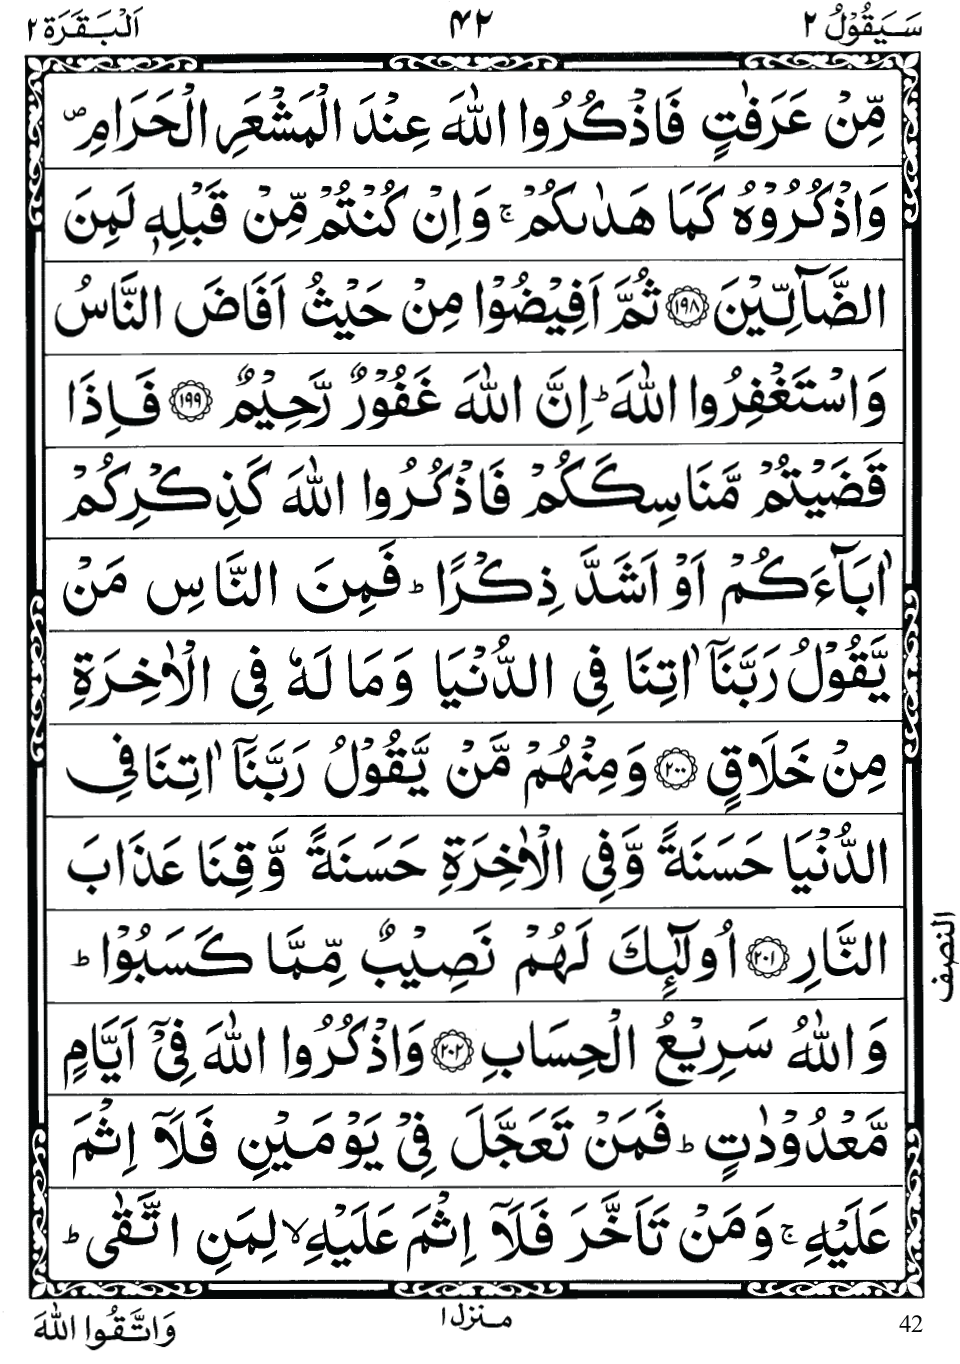 سَيَقُوْلُ ٢ ٤٢ اَلْبَقَرَة ٢
مِّنْ عَرَفٰتٍ فَاذْكُرُوا اللّٰهَ عِنْدَ الْمَشْعَرِ الْحَرَامِ ۪
وَاذْكُرُوْهُ كَمَا هَدٰىكُمْ ۚ وَاِنْ كُنْتُمْ مِّنْ قَبْلِهٖ لَمِنَ
الضَّآلِّيْنَ ﴿١٩٨﴾ ثُمَّ اَفِيْضُوْا مِنْ حَيْثُ اَفَاضَ النَّاسُ
وَاسْتَغْفِرُوا اللّٰهَ ؕ اِنَّ اللّٰهَ غَفُوْرٌ رَّحِيْمٌ ﴿١٩٩﴾ فَاِذَا
قَضَيْتُمْ مَّنَاسِكَكُمْ فَاذْكُرُوا اللّٰهَ كَذِكْرِكُمْ
اٰبَآءَكُمْ اَوْ اَشَدَّ ذِكْرًا ؕ فَمِنَ النَّاسِ مَنْ
يَّقُوْلُ رَبَّنَآ اٰتِنَا فِى الدُّنْيَا وَمَا لَهٗ فِى الْاٰخِرَةِ
مِنْ خَلَاقٍ ﴿٢٠٠﴾ وَمِنْهُمْ مَّنْ يَّقُوْلُ رَبَّنَآ اٰتِنَا فِى
الدُّنْيَا حَسَنَةً وَّفِى الْاٰخِرَةِ حَسَنَةً وَّقِنَا عَذَابَ
النَّارِ ﴿٢٠١﴾ اُولٰٓئِكَ لَهُمْ نَصِيْبٌ مِّمَّا كَسَبُوْا ؕ
وَاللّٰهُ سَرِيْعُ الْحِسَابِ ﴿٢٠٢﴾ وَاذْكُرُوا اللّٰهَ فِىْٓ اَيَّامٍ
مَّعْدُوْدٰتٍ ؕ فَمَنْ تَعَجَّلَ فِىْ يَوْمَيْنِ فَلَآ اِثْمَ
عَلَيْهِ ۚ وَمَنْ تَاَخَّرَ فَلَآ اِثْمَ عَلَيْهِ ۙ لِمَنِ اتَّقٰى ؕ
النصف
42 منزل ١ وَاتَّقُوا اللّٰهَ